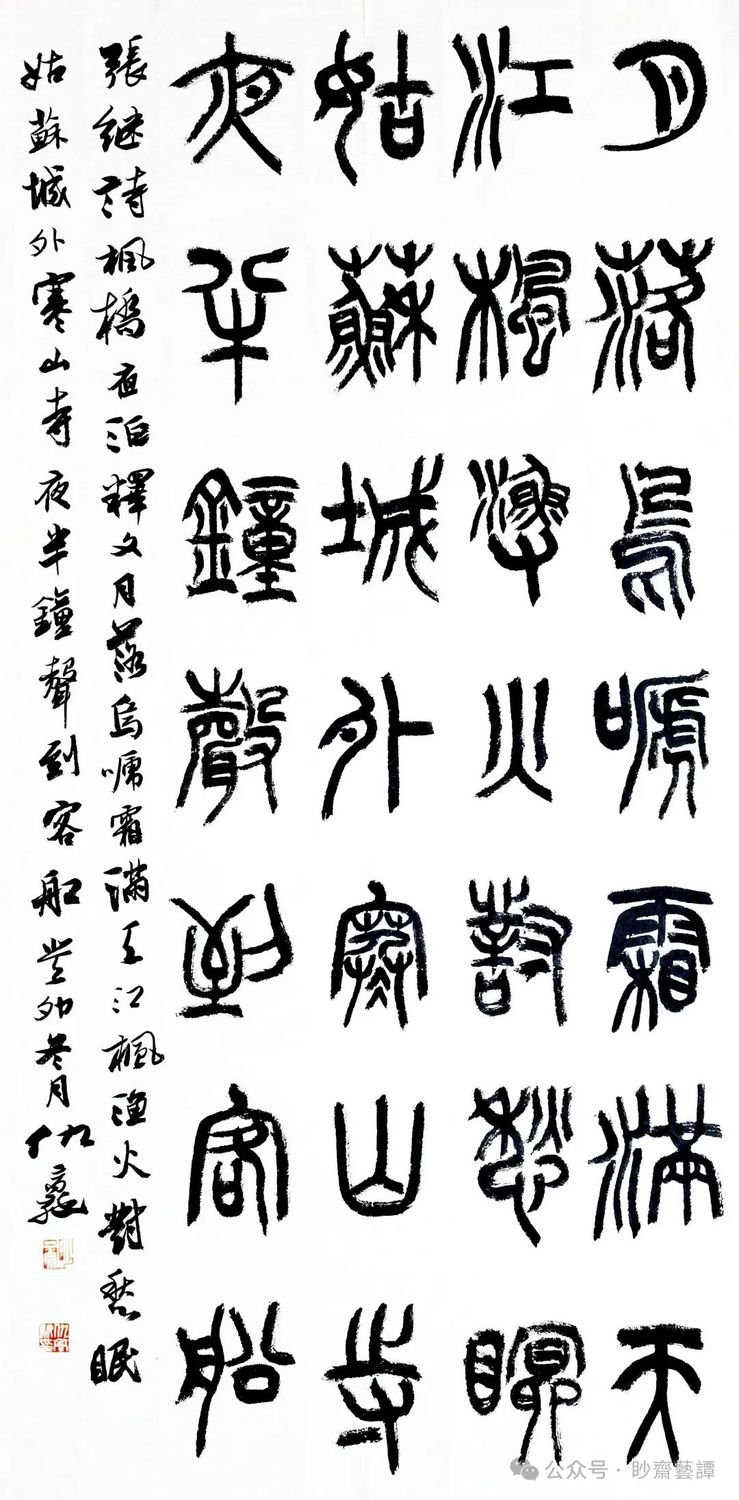 月落烏嗁霜滿天
江楓漁火對愁瞑
姑蘇城外寒山寺
夜半鐘聲到客船
張继詩楓橋夜泊釋文月落烏嗁霜滿天江楓漁火對愁眠
姑蘇城外寒山寺夜半鐘聲到客船 癸卯冬月仇
公众号·眇齋藝譚